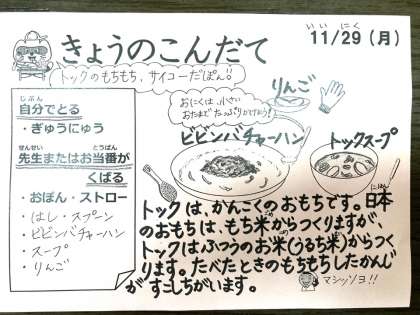 きょうのこんだて
いい にく
11/29 (月)
トックのもちもち、サイコーだぽん!!
りんご
おにくは、小さい
おたまで たっぷりかけてね!
ビビンバチャーハン
トックスープ
じぶん
自分でとる
・ぎゅうにゅう
せんせい とうばん
先生またはお当番が
くばる
・おぼん・ストロー
・はし・スプーン
・ビビンバチャーハン
・スープ
・りんご
トックは、かんこくのおもちです。日本
にほん
のおもちは、もち米からつくりますが、
トックはふつうのお米(うるち米)からつく
ります。たべたときのもちもちしたかんじ
が すこしちがいます。
マシッソヨ!!